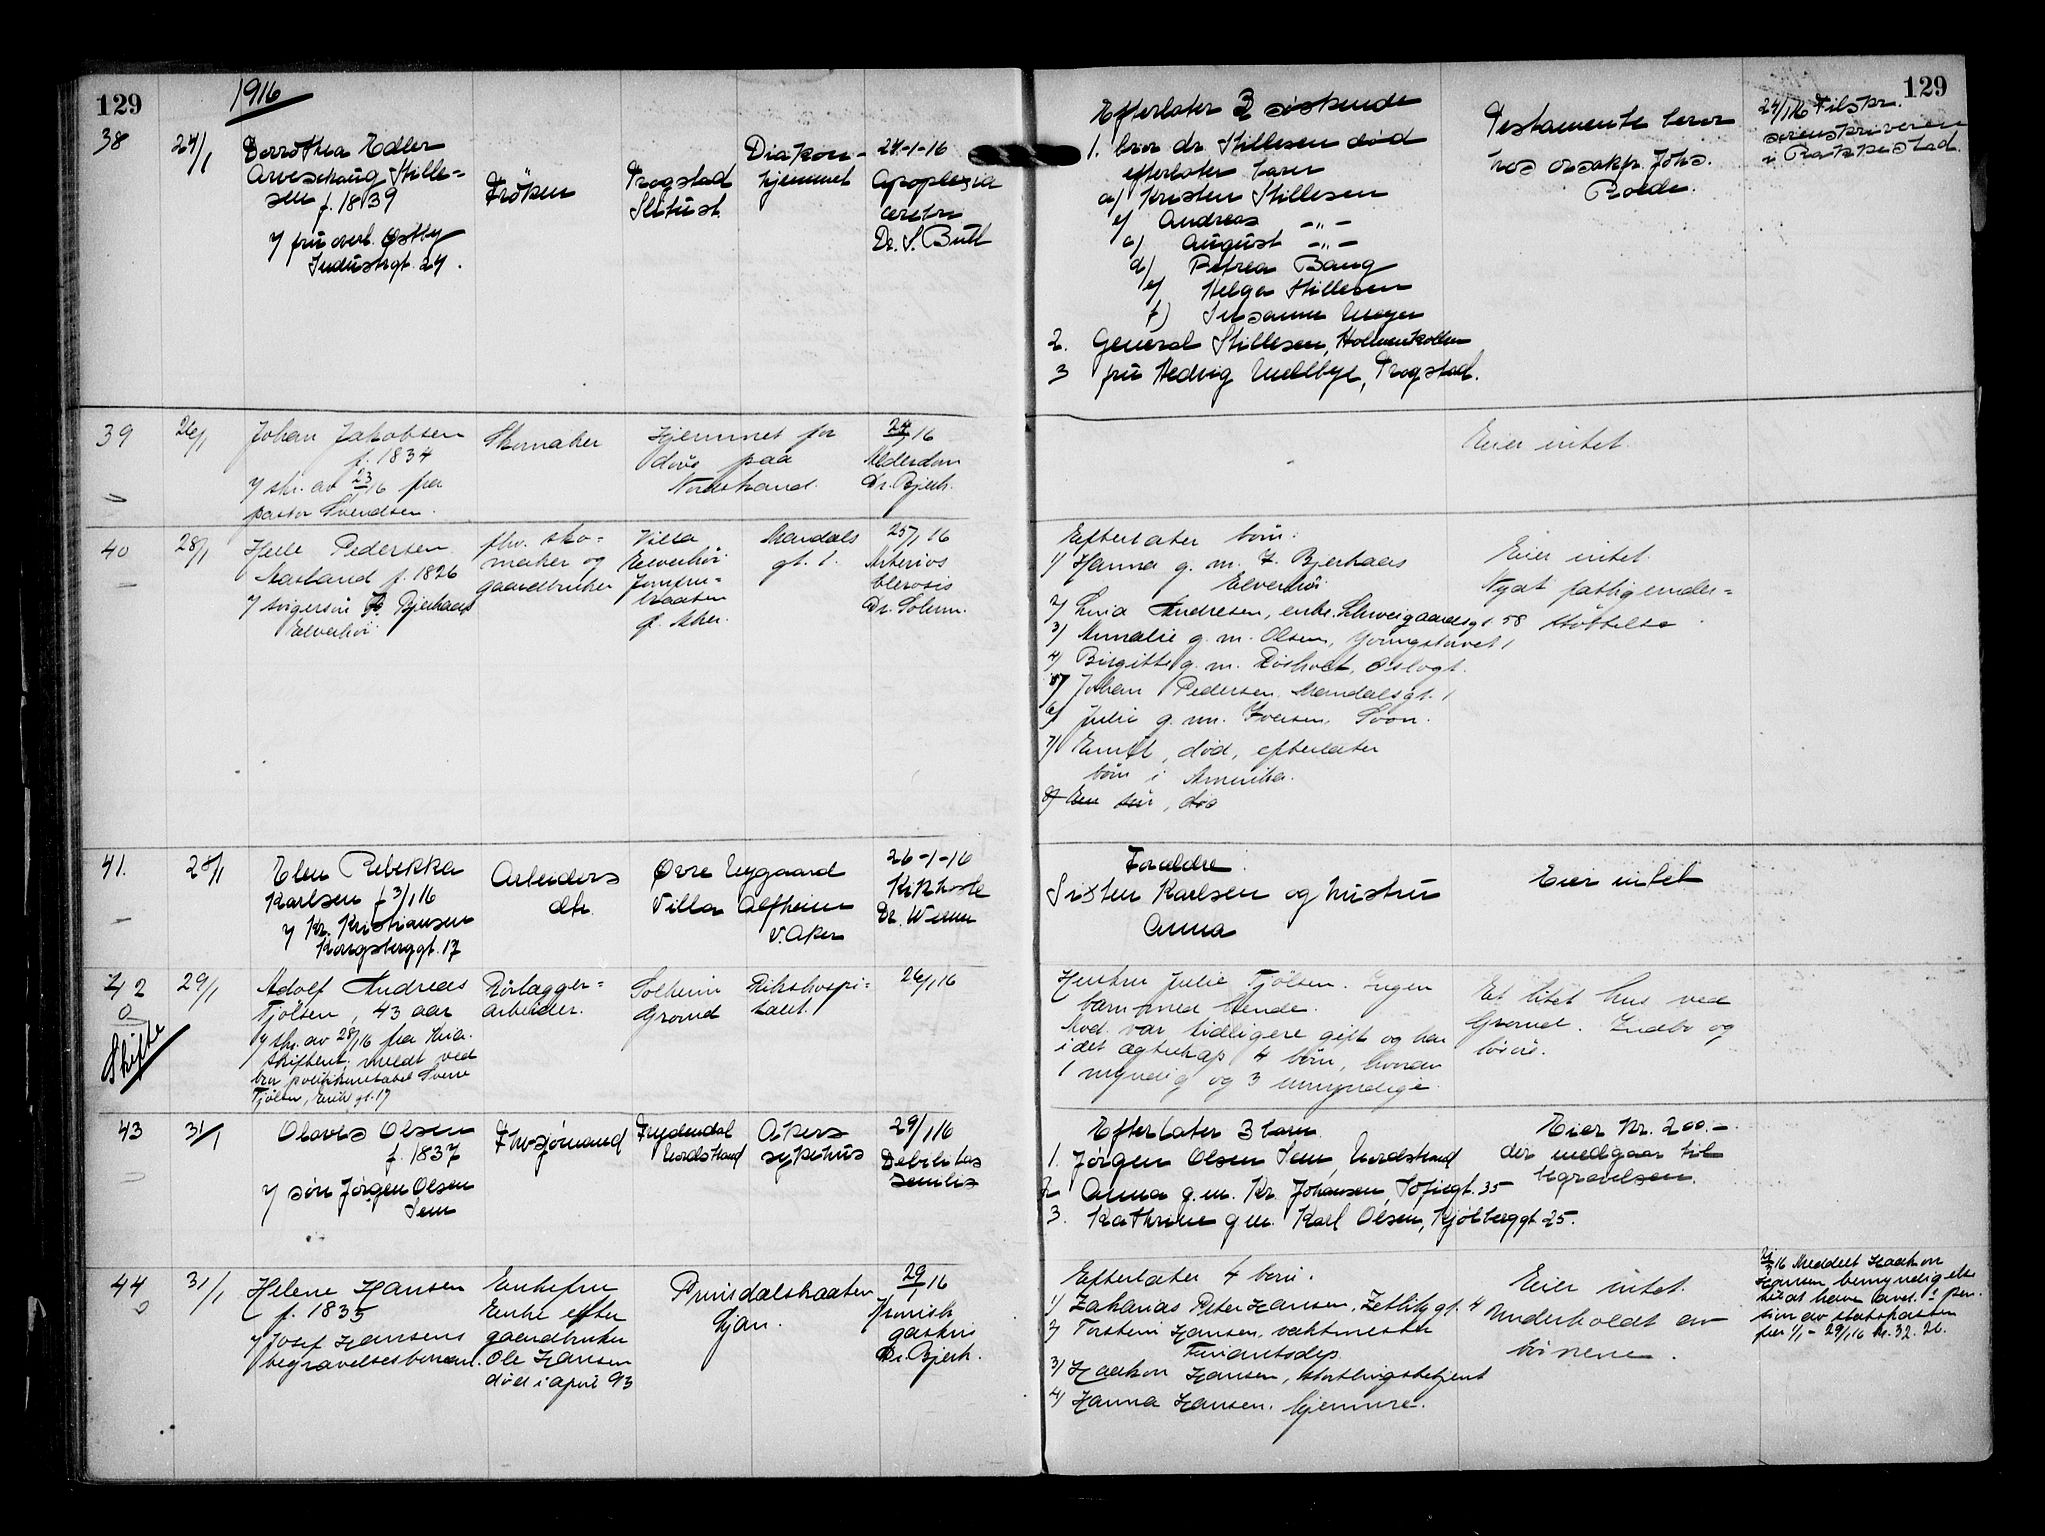 129
1916
129
38
24/1
Dorothea Edler
Arveschoug Stille-
sen f. 1839
v/ fru overl. Østby
Industrigt. 24.
Frøken
Trogstad
Slitust.
Diakon-
hjemmet
24-1-16
Apoplexia
cerebri
Dr. S. Bull
Efterlater 3 søskende
1. bror dr. Stillesen død
efterlater barn
a) Kristen Stillesen
b) Andreas -"-
c) August -"-
d) Petrea Bang
e) Helga Stillesen
f) Susanne Meyer
2. General Stillesen, Holmenkollen
3 fru Hedvig Mellbye, Trogstad.
Testamente beror
hos o.r.sakfr. Johs.
Roede.
24/1 16 Tilskr.
sorenskriveren
i Rakkestad.
39
26/1
Johan Jakobsen
f. 1834
v/ skr. av 23/16 fra
pastor Svendsen.
Skomaker
Hjemmet for
døve paa
Nordstrand.
24/1 16
Alderdom
Dr. Bjerk.
Eier intet.
40
28/1
Helle Pedersen
Aasland f. 1826
v/ svigersøn Bjerkaas
Elverhöi
fhv. sko-
maker og
gaardbruker
Villa
Elverhöi
Jomfru-
braaten
Ø. Aker.
Mandals
gt. 1.
25/1 16
Arterios
clerosis
Dr. Solem.
Efterlater börn:
1) Hanna g. m. Z. Bjerkaas
Elverhöi
2) Lovia Andresen, enke. Schweigaardsgt. 58
3) Annalie g. m. Olsen, Youngstorvet 1
4) Birgitte g. m. Röisholt, Oslogt.
5) Johan Pedersen. Mandalsgt. 1
6) Julie g. m. Iversen, Soon.
7) Emil, död, efterlater
börn i Amerika.
8) Een sön, död
Eier intet.
Nydt fattigunder-
støttelse.
41.
28/1
Elen Rebekka
Karlsen f 3/1 16
v/ Kr. Kristiansen
Kongsberggt. 17
Arbeiders
dtr.
Øvre Nygaard
Villa Alfheim
V. Aker
26-1-16
Kikhoste
Dr. Werner
Forældre
Sixten Karlsen og hustru
Anna
Eier intet
42
0
Skifte
29/1
Adolf Andreas
Tjölsen, 43 aar
v/ skr. av 28/1 16 fra Kria.
skifteret; meldt ved
bror politikonstabel Sverre
Tjölsen, Eriksgt. 17
Rörlægger-
arbeider.
Solheim
Grorud
Rikshospi-
talet.
26/1 16
Hustru Julie Tjölsen. Ingen
barn med hende.
Avd. var tidligere gift og har
i det ægteskap 4 börn, hvorav
1 myndig og 3 umyndige.
Et litet hus ved
Grorud. Indbo og
lösöre.
43
31/1
Olaves Olsen
f. 1837
v/ søn Jørgen Olsen
Sem
Fhv sjømand
Frydendal
Nordstrand
Akers
sykehus
29/1 16
Debilitas
senilis
Efterlater 3 barn
1. Jørgen Olsen Sem, Nordstrand
2 Anna g. m. Kr. Johansen, Sofiegt. 35
3. Kathrine g m. Karl Olsen, Kjølberggt 25.
Eier Kr. 200.-
der medgaar til
begravelsen.
44
0
31/1
Helene Hansen
f. 1835
v/ Josef Hansens
begravelsesbureau.
Enkefru
Enke efter
gaardbruker
Ole Hansen
död i april 93
Prinsdalsbraaten
Ljan.
29/1 16
Kronisk
gastrit
Dr. Bjerk.
Efterlater 4 börn.
1) Zakarias Peter Hansen. Zetlitzgt. 4
2) Torstein Hansen, vaktmester
Finantsdep.
3) Haakon Hansen, stortingsbetjent
4) Hanna Hansen. hjemme.
Eier intet.
Underholdt av
börnene.
21/3 16 Meddelt Haakon
Hansen bemyndigelse
til at hæve avd.s pen-
sion av statskassen
for 1/1 - 29/1 16 kr. 32.26.